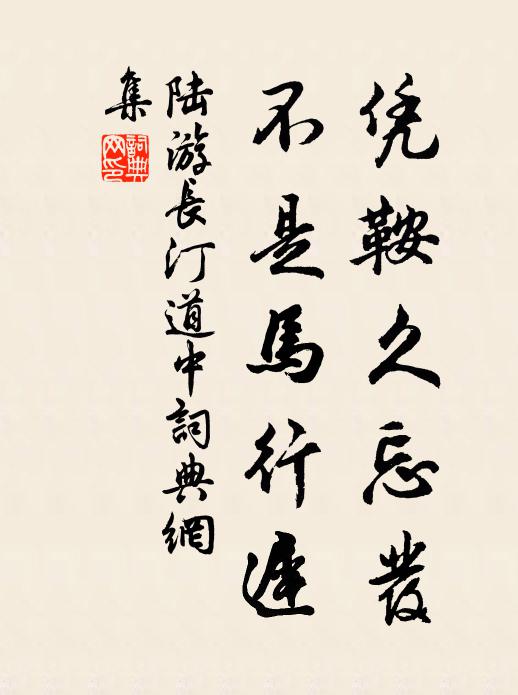 凭鞍久忘發
不是馬行遲
陸游長汀道中詞典網
集
詞典網印